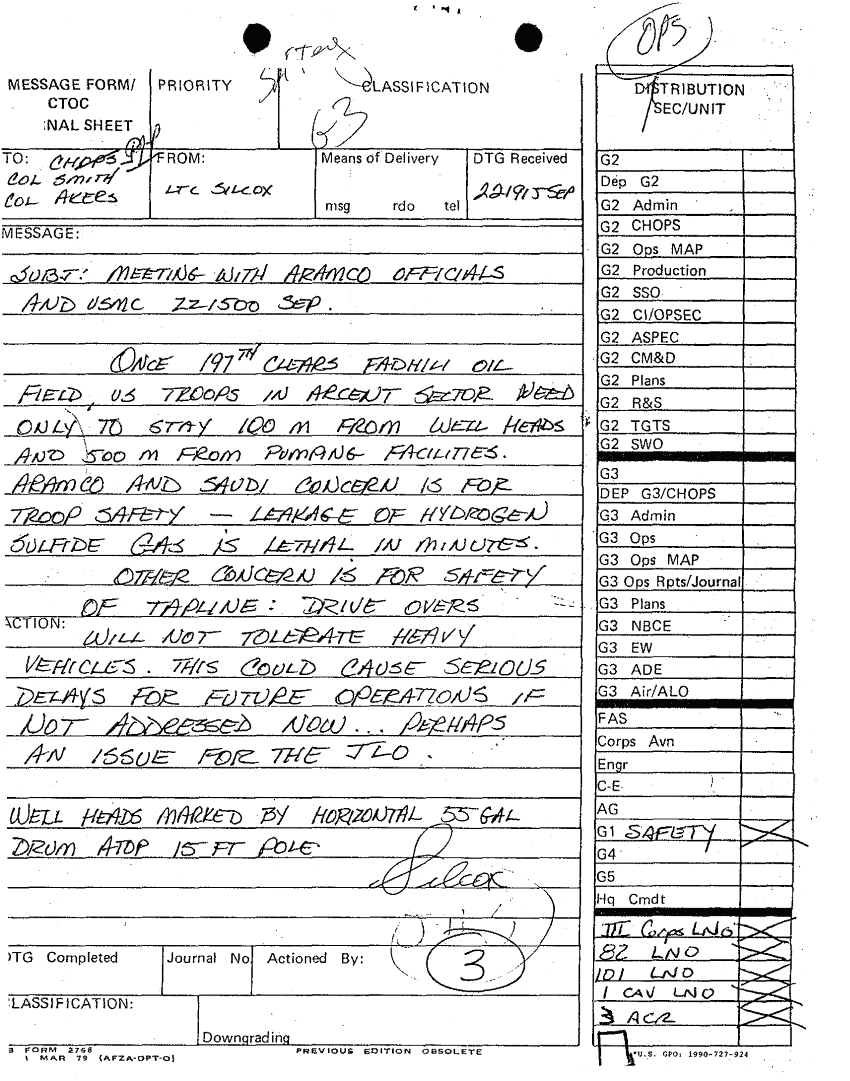 OPS
MESSAGE FORM/
CTOC
NAL SHEET
PRIORITY
CLASSIFICATION
G3
TO: CHOPS
COL SMITH
COL AKERS
FROM:
LTC SILCOX
Means of Delivery
msg rdo tel
DTG Received
221915 SEP
MESSAGE:
SUBJ: MEETING WITH ARAMCO OFFICIALS
AND USMC 221500 SEP.
ONCE 197TH CLEARS FADHILI OIL
FIELD, US TROOPS IN ARCENT SECTOR NEED
ONLY TO STAY 100 M FROM WELL HEADS
AND 500 M FROM PUMPING FACILITIES.
ARAMCO AND SAUDI CONCERN IS FOR
TROOP SAFETY — LEAKAGE OF HYDROGEN
SULFIDE GAS IS LETHAL IN MINUTES.
OTHER CONCERN IS FOR SAFETY
OF TAPLINE: DRIVE OVERS
ACTION:
WILL NOT TOLERATE HEAVY
VEHICLES. THIS COULD CAUSE SERIOUS
DELAYS FOR FUTURE OPERATIONS IF
NOT ADDRESSED NOW... PERHAPS
AN ISSUE FOR THE JLO.
WELL HEADS MARKED BY HORIZONTAL 55 GAL
DRUM ATOP 15 FT POLE
Silcox
DTG Completed
Journal No
Actioned By:
3
CLASSIFICATION:
Downgrading
FORM 2768
1 MAR 79 (AFZA-DPT-O)
PREVIOUS EDITION OBSOLETE
DISTRIBUTION
SEC/UNIT
G2
Dep G2
G2 Admin
G2 CHOPS
G2 Ops MAP
G2 Production
G2 SSO
G2 CI/OPSEC
G2 ASPEC
G2 CM&D
G2 Plans
G2 R&S
G2 TGTS
G2 SWO
G3
DEP G3/CHOPS
G3 Admin
G3 Ops
G3 Ops MAP
G3 Ops Rpts/Journal
G3 Plans
G3 NBCE
G3 EW
G3 ADE
G3 Air/ALO
FAS
Corps Avn
Engr
C-E
AG
G1 SAFETY
G4
G5
Hq Cmdt
III Corps LNO
82 LNO
101 LNO
1 CAV LNO
3 ACR
*U.S. GPO: 1990-727-924